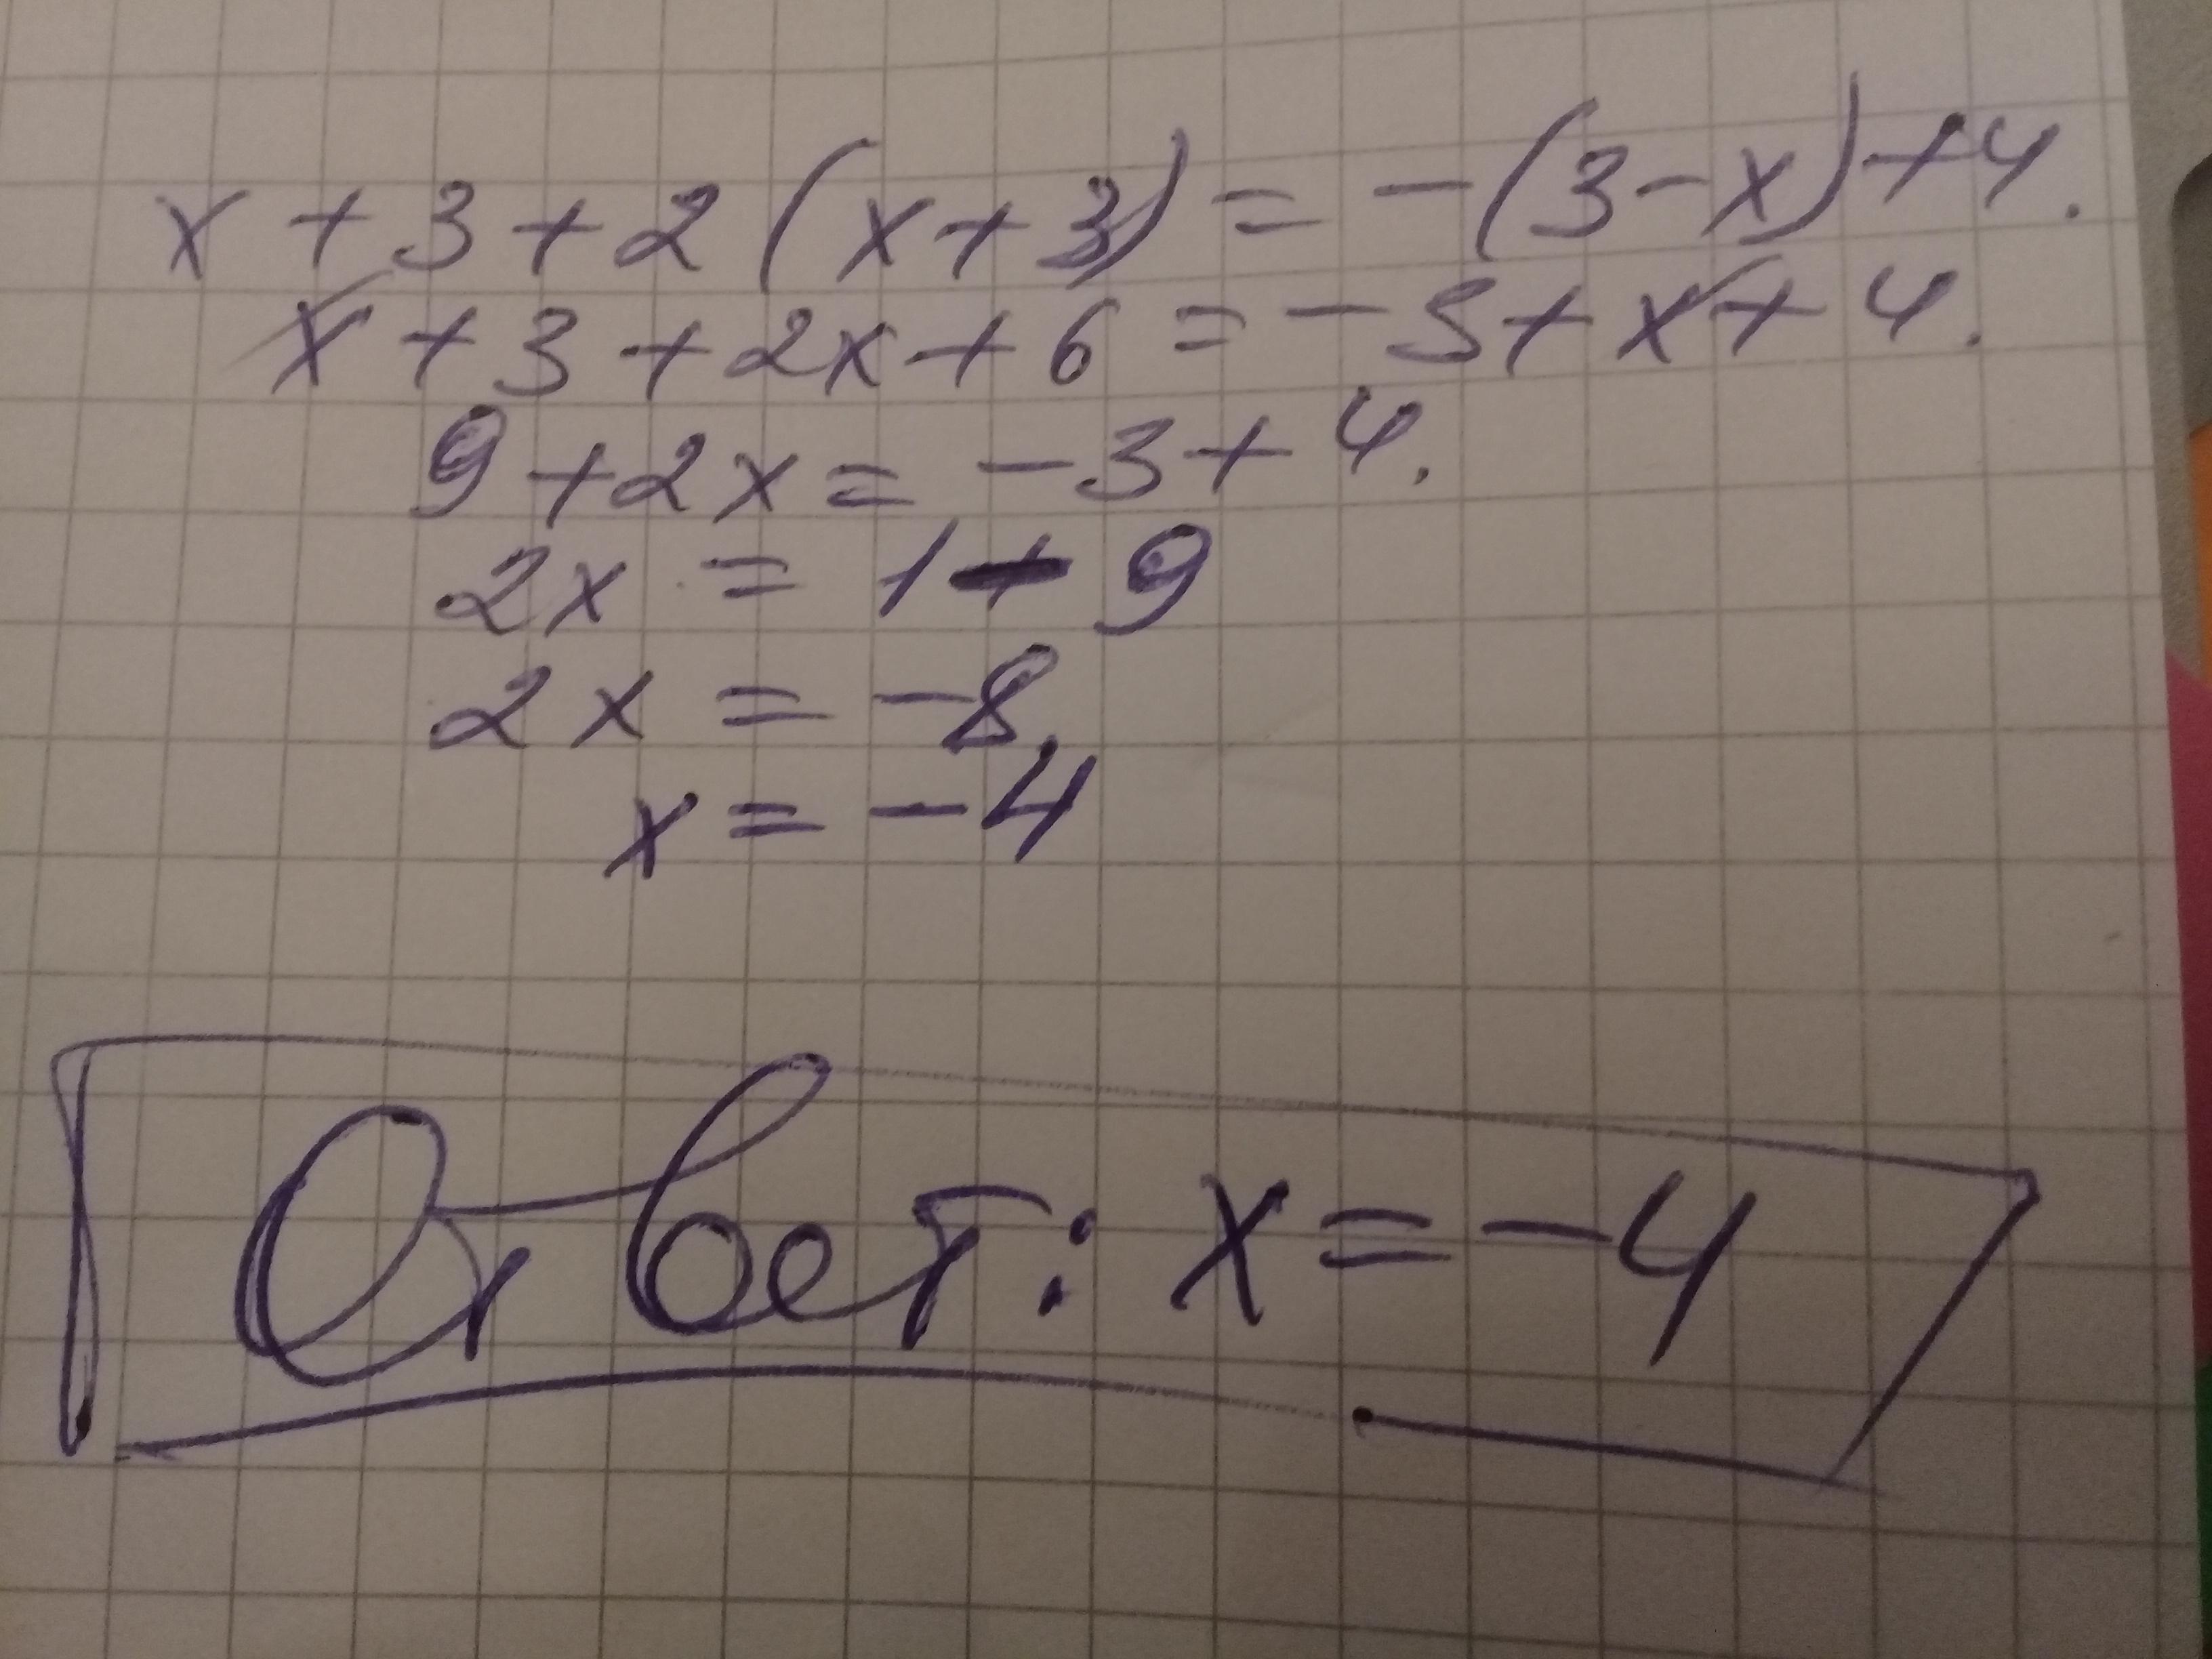 x + 3 + 2 (x + 3) = - (3 - x) + 4.
x + 3 + 2x + 6 = - 3 + x + 4.
9 + 2x = - 3 + 4.
2x = 1 - 9
2x = - 8
x = - 4
Ответ: x = - 4